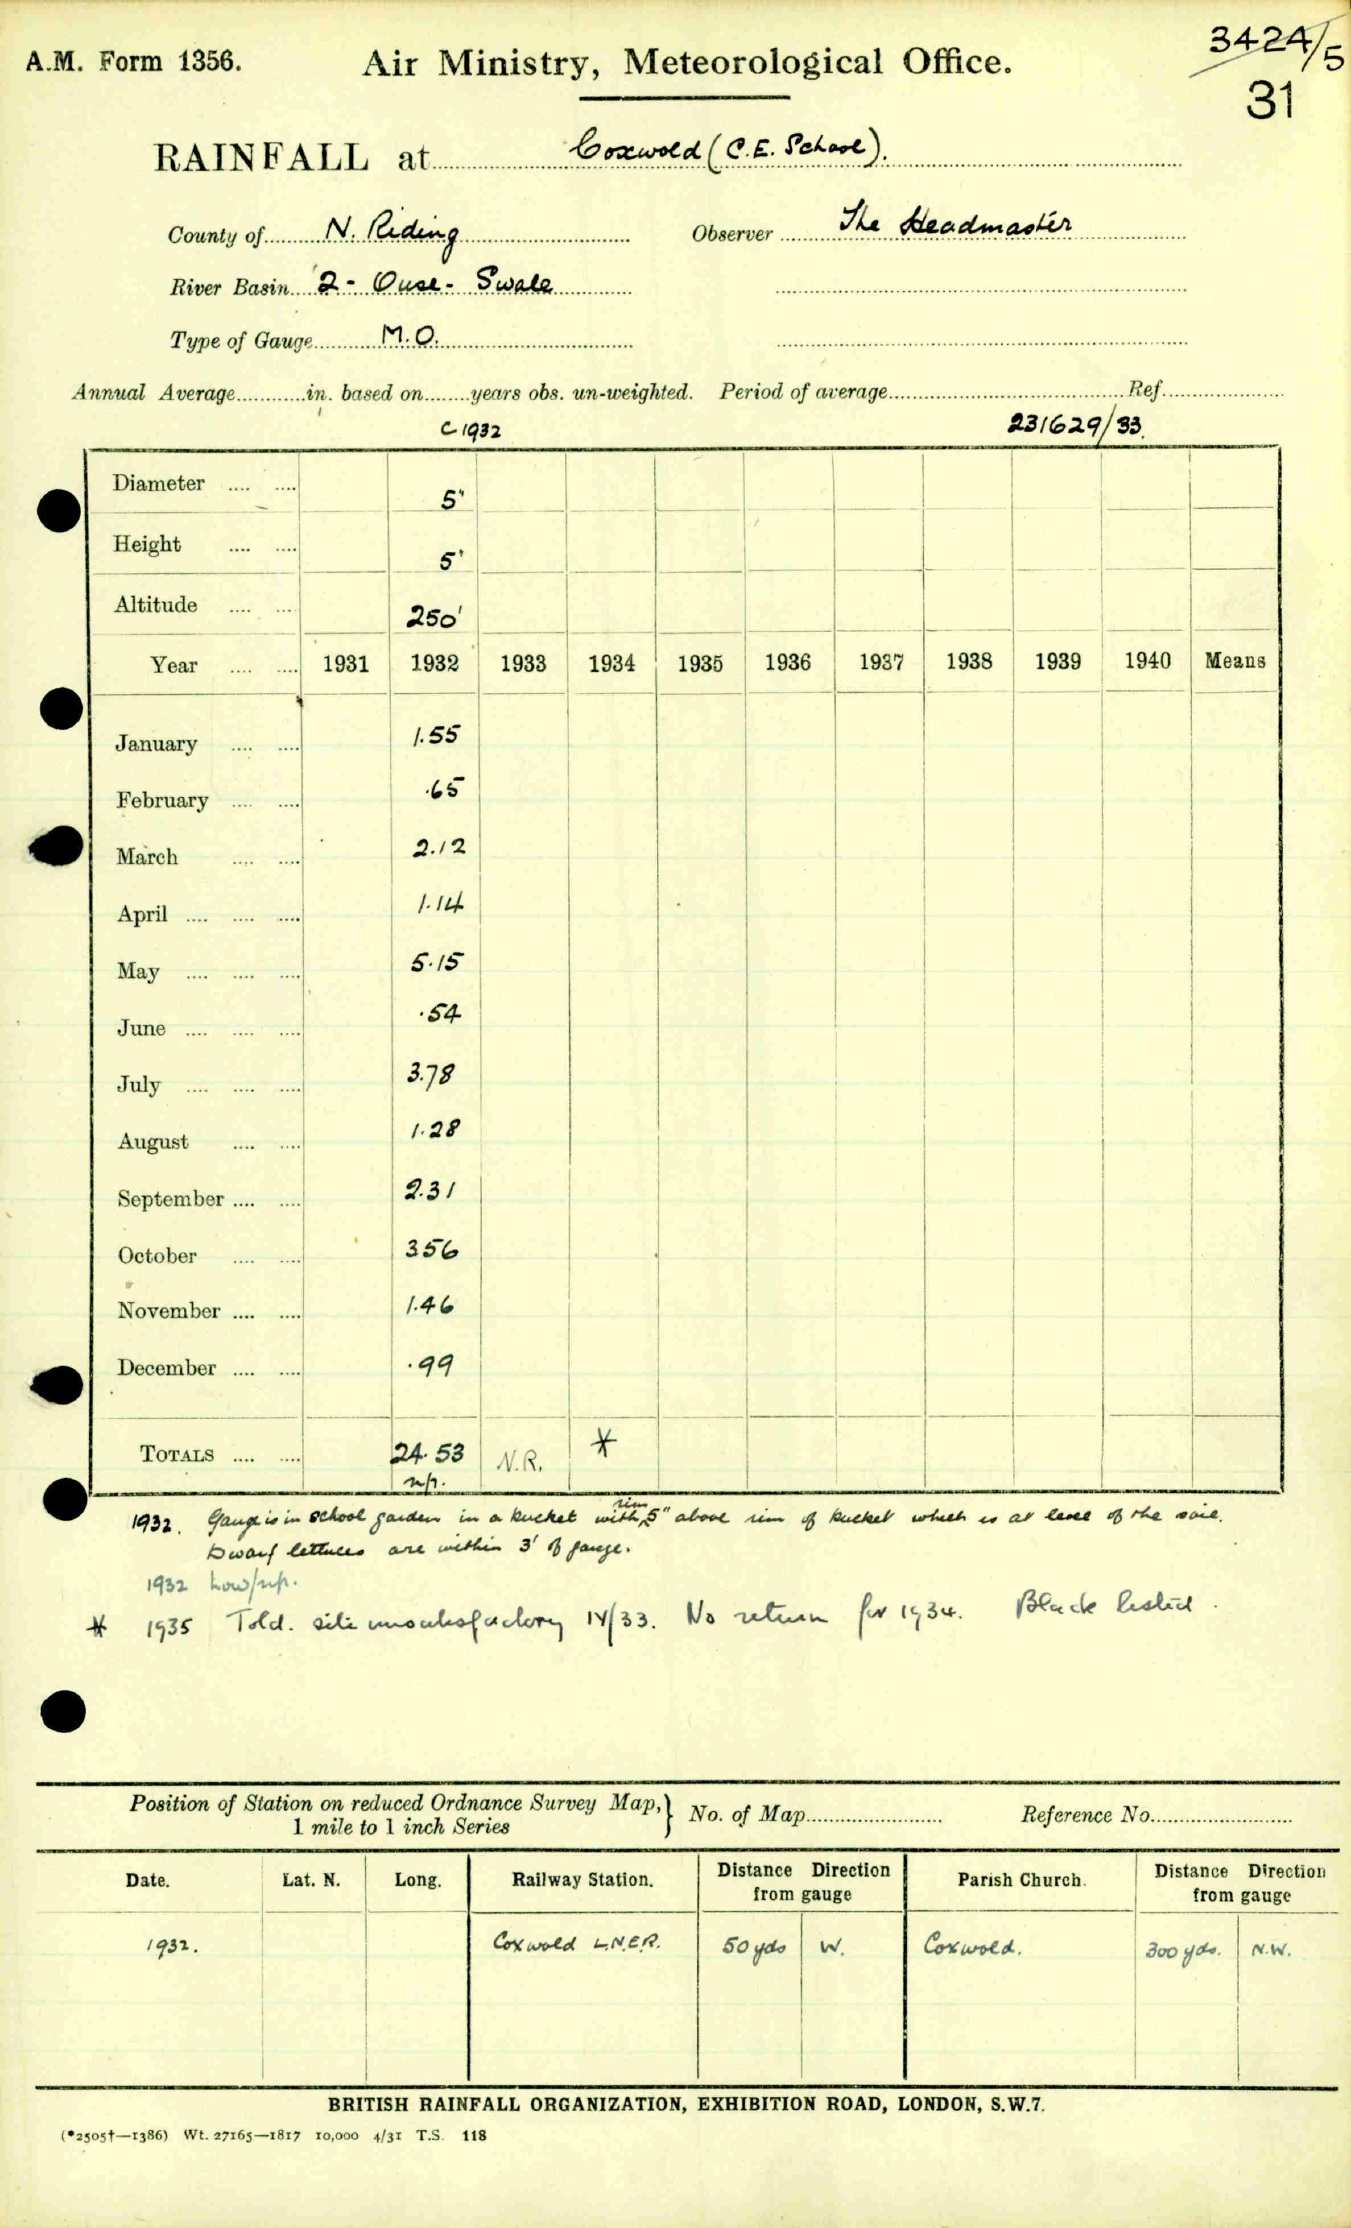 A.M. Form 1356.
Air Ministry, Meteorological Office.
3424/5
31
RAINFALL at Coxwold (C.E. School).
County of N. Riding Observer The Headmaster
River Basin 2 - Ouse - Swale
Type of Gauge M.O.
Annual Average in. based on years obs. un-weighted. Period of average Ref.
C 1932 231629/33.
Diameter 5"
Height 5'
Altitude 250'
Year 1931 1932 1933 1934 1935 1936 1937 1938 1939 1940 Means
January 1.55
February .65
March 2.12
April 1.14
May 5.15
June .54
July 3.78
August 1.28
September 2.31
October 356
November 1.46
December .99
TOTALS 24.53 N.R. *
np.
1932. Gauge is in school garden in a bucket with rim 5" above rim of bucket which is at level of the soil.
Dwarf lettuces are within 3' of gauge.
1932 Low/np.
* 1935 Told. site unsatisfactory IV/33. No return for 1934. Black listed.
Position of Station on reduced Ordnance Survey Map, 1 mile to 1 inch Series } No. of Map Reference No.
Date. Lat. N. Long. Railway Station. Distance Direction from gauge Parish Church. Distance Direction from gauge
1932. Coxwold L.N.E.R. 50 yds W. Coxwold. 300 yds. N.W.
BRITISH RAINFALL ORGANIZATION, EXHIBITION ROAD, LONDON, S.W.7.
(*2505†—1386) Wt. 27165—1817 10,000 4/31 T.S. 118